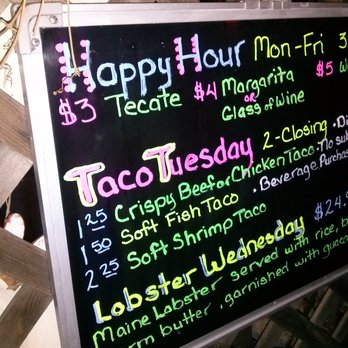 Happy Hour Mon-Fri 3
$3 Tecate $4 Margarita or Glass of Wine $5
Taco Tuesday 2-Closing
1.25 Crispy Beef or Chicken Taco. No
1.50 Soft Fish Taco . Beverage Purchas
2.25 Soft Shrimp Taco
Lobster Wednesday $24.
Maine Lobster served with rice, b
butter, garnished with